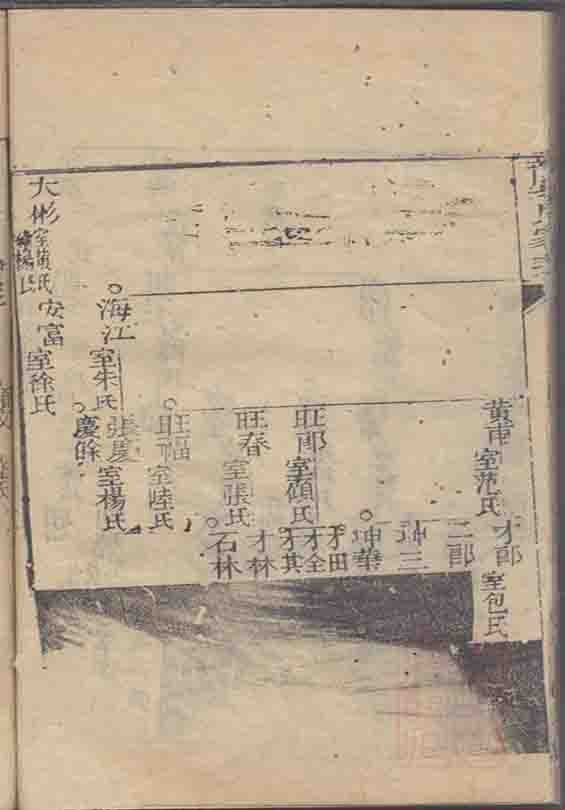 室范氏
才郎
室包氏
二郎
坤三
坤華
旺郎
室顧氏
才田
才全
才其
旺春
室張氏
才林
石林
旺福
室陸氏
海江
室朱氏
張慶
室楊氏
慶餘
大彬
室黄氏
繼楊氏
安富
室徐氏